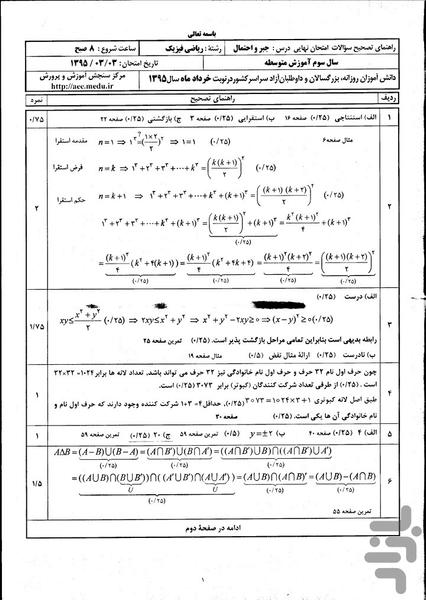 باسمه تعالی
راهنمای تصحیح سؤالات امتحان نهایی درس : جبر و احتمال رشتهٔ : ریاضی فیزیک ساعت شروع : ۸ صبح
سال سوم آموزش متوسطه تاریخ امتحان: ۱۳۹۵ / ۰۳ / ۰۳
دانش آموزان روزانه، بزرگسالان و داوطلبان آزاد سراسر کشور در نوبت خرداد ماه سال ۱۳۹۵ مرکز سنجش آموزش و پرورش
http://aee.medu.ir
ردیف راهنمای تصحیح نمره
۱ الف) استنتاجی (۰/۲۵) صفحه ۱۶ ب) استقرایی (۰/۲۵) صفحه ۳ ج) بازگشتی (۰/۲۵) صفحه ۲۲ ۰/۷۵
۲ مثال صفحه ۶ n=۱ ⇒ ۱³ ≟ ((۱×۲)/۲)² ⇒ ۱=۱ (۰/۲۵) مقدمه استقرا
n=k ⇒ ۱³+۲³+۳³+⋯+k³ = (k(k+۱)/۲)² (۰/۲۵) فرض استقرا
n=k+۱ ⇒ ۱³+۲³+۳³+⋯+k³+(k+۱)³ = ((k+۱)(k+۲)/۲)² (۰/۲۵) حکم استقرا
۱³+۲³+۳³+⋯+k³+(k+۱)³ = (k(k+۱)/۲)²+(k+۱)³ = k²(k+۱)²/۴+(k+۱)³ ۲
(۰/۲۵)
= (k+۱)²/۴ (k²+۴(k+۱)) = (k+۱)²/۴ (k²+۴k+۴) = (k+۱)²(k+۲)²/۴ = ((k+۱)(k+۲)/۲)²
(۰/۲۵) (۰/۲۵) (۰/۲۵) (۰/۲۵)
۳ الف) درست (۰/۲۵)
xy ≤ (x²+y²)/۲ (۰/۲۵) ⇒ ۲xy ≤ x²+y² ⇒ x²+y²−۲xy ≥ ۰ ⇒ (x−y)² ≥ ۰ (۰/۲۵) ۱/۷۵
رابطه بدیهی است بنابراین تمامی مراحل بازگشت پذیر است. (۰/۲۵) تمرین صفحه ۲۵
ب) نادرست (۰/۲۵) ارائهٔ مثال نقض (۰/۵) مثال صفحه ۱۹
۴ چون حرف اول نام ۳۲ حرف و حرف اول نام خانوادگی نیز ۳۲ حرف می تواند باشد، تعداد لانه ها برابر ۱۰۲۴=۳۲×۳۲
است. (۰/۲۵) از طرفی تعداد شرکت کنندگان (کبوتر) برابر ۳۰۷۳ (۰/۲۵) است. ۱
طبق اصل لانه کبوتری ۱+۳×۱۰۲۴=۳۰۷۳ (۰/۲۵)، حداقل ۴=۱+۳ شرکت کننده وجود دارند که حرف اول نام و
نام خانوادگی آن ها یکی است. (۰/۲۵) صفحه ۳۰
۵ الف) ۴ (۰/۲۵) صفحه ۴۰ ب) y=±۲ (۰/۵) تمرین صفحه ۵۹ ج) ۲۰ (۰/۲۵) تمرین صفحه ۵۹ ۱
۶ AΔB = (A−B)∪(B−A) = (A∩B′)∪(B∩A′) = ((A∩B′)∪B)∩((A∩B′)∪A′)
(۰/۲۵) (۰/۲۵) (۰/۲۵)
= ((A∪B)∩(B∪B′))∩((A′∪B′)∩(A∪A′)) = (A∪B)∩(A∩B)′ = (A∪B)−(A∩B) ۱/۵
U U
(۰/۲۵) (۰/۲۵) (۰/۲۵)
تمرین صفحه ۵۵
ادامه در صفحهٔ دوم
۱